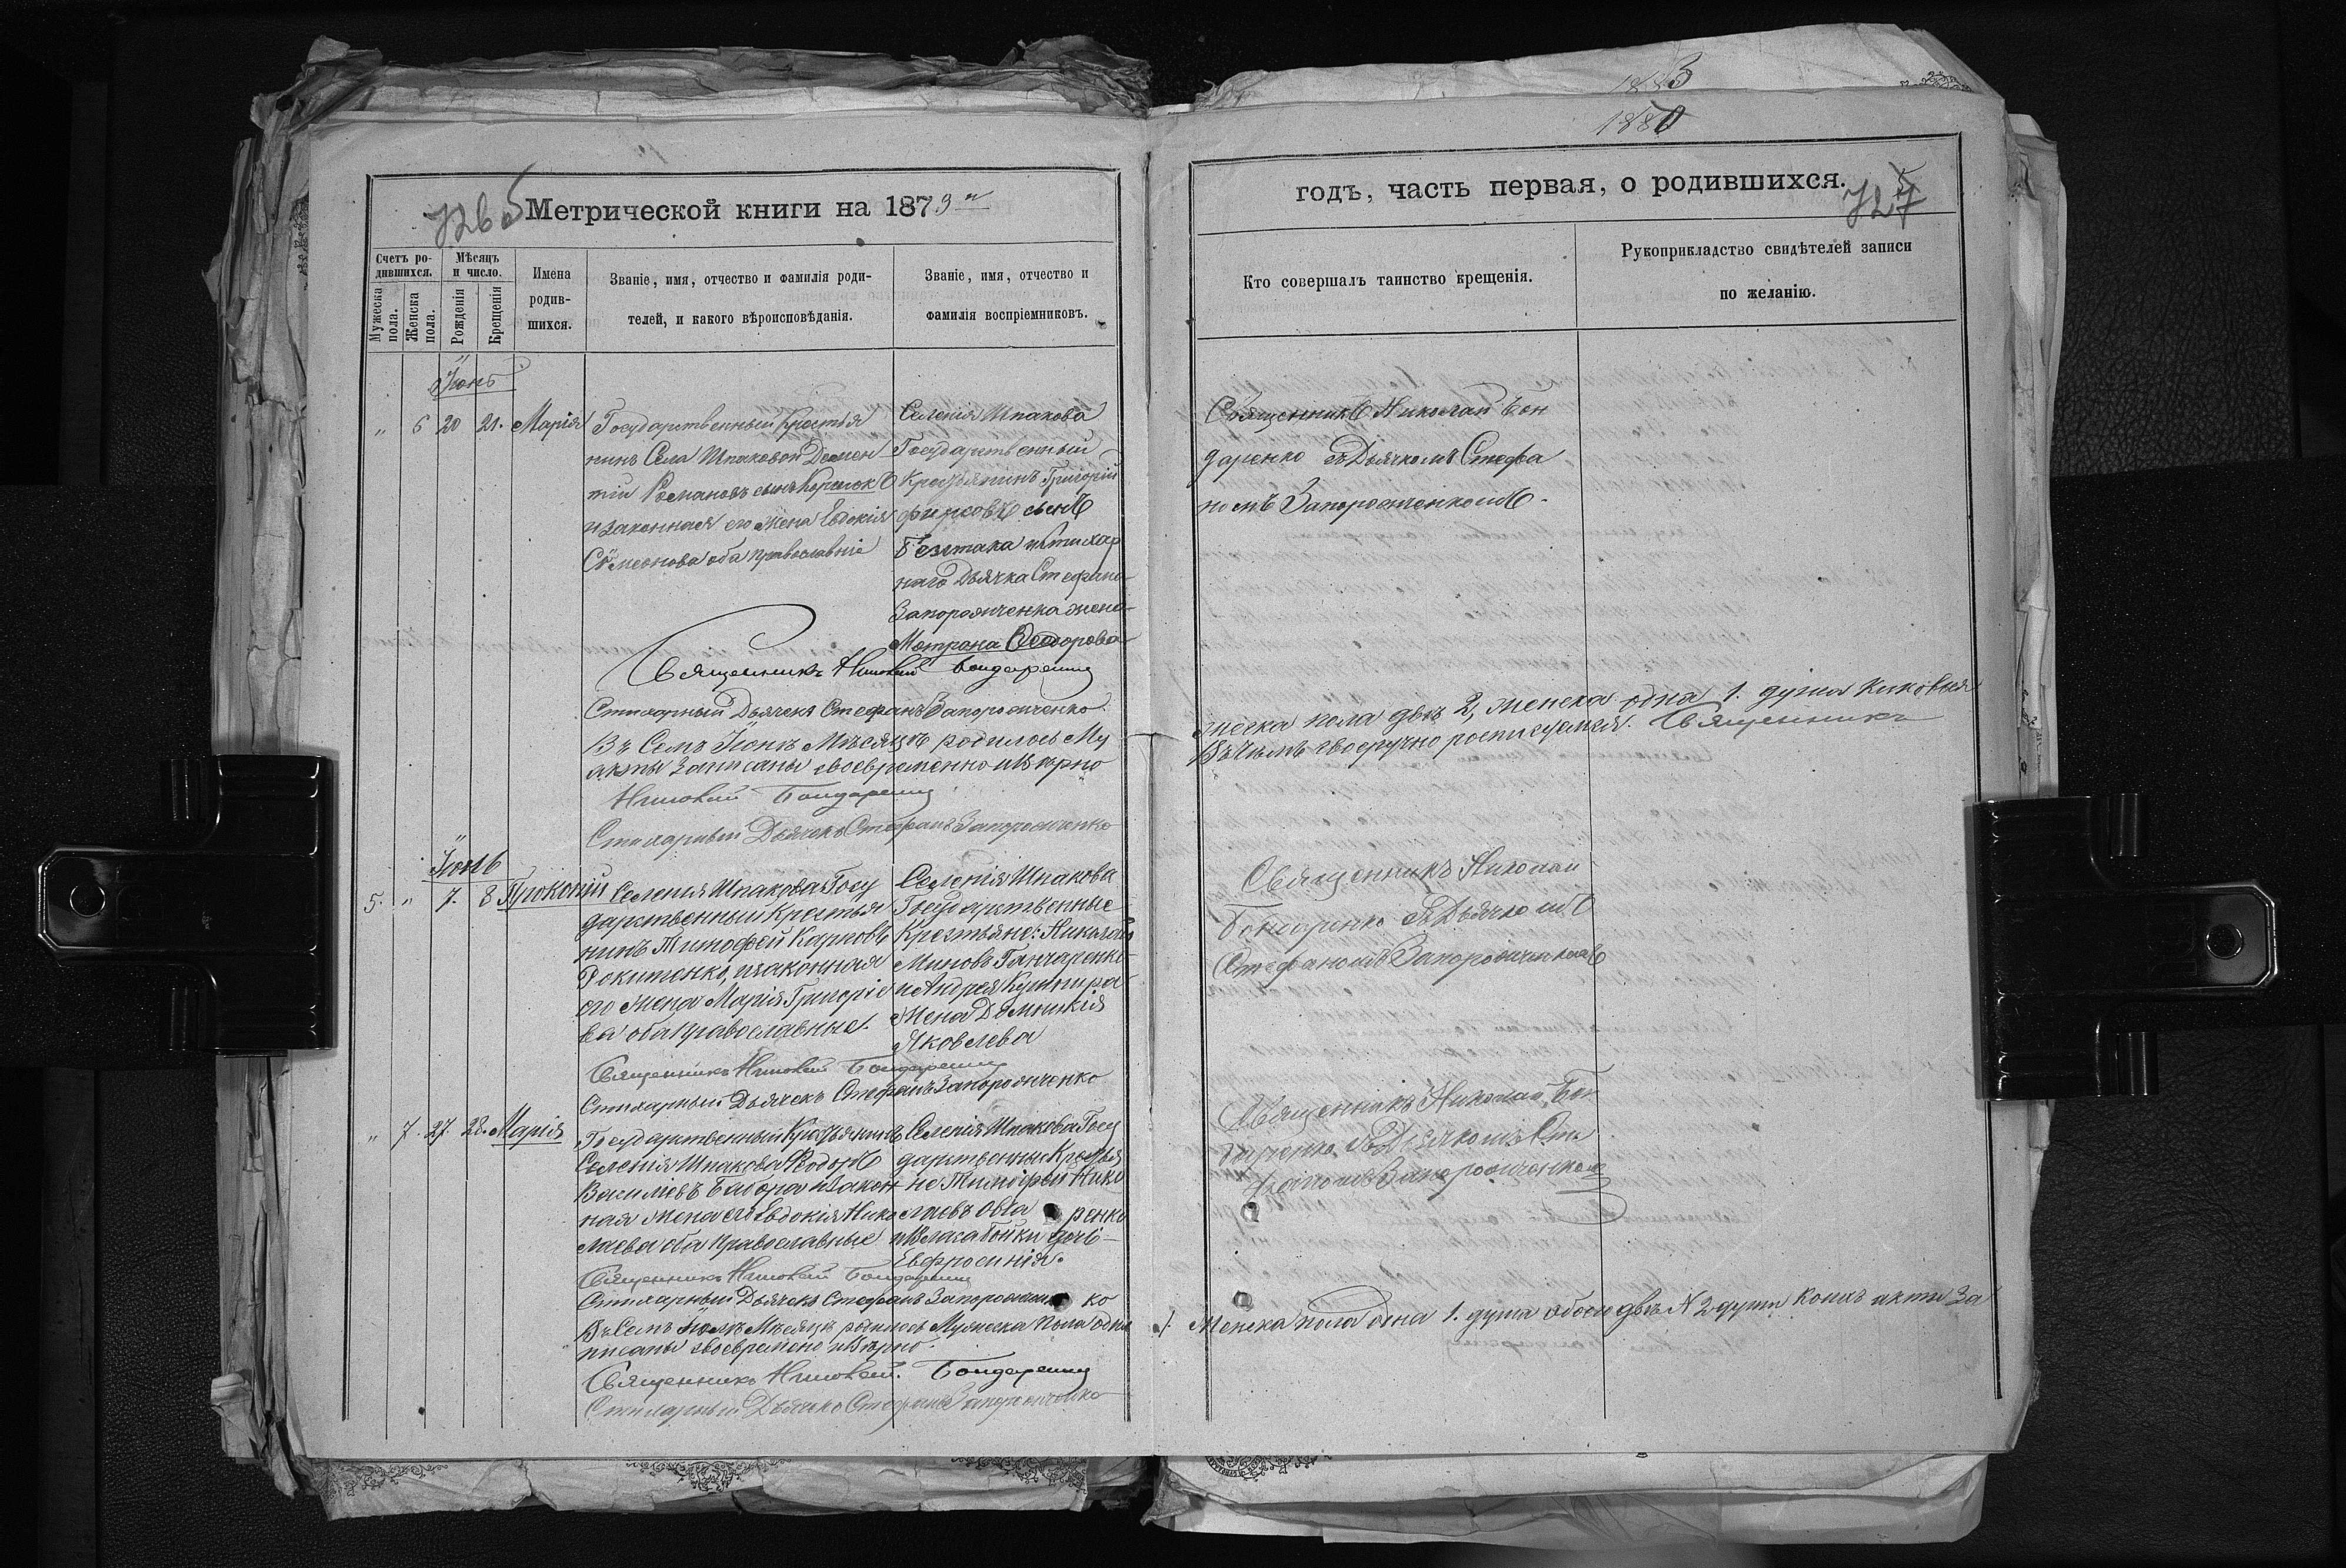 1883
1880
Метрической книги на 1873
годъ, часть первая, о родившихся.
727
Счетъ ро-
дившихся.
Мѣсяцъ
и число.
Мужеска
пола.
Женска
пола.
Рожденія
Крещенія
Имена
родив-
шихся.
Званіе, имя, отчество и фамилія роди-
телей, и какого вѣроисповѣданія.
Званіе, имя, отчество и
фамилія воспріемниковъ.
Кто совершалъ таинство крещенія.
Рукоприкладство свидѣтелей записи
по желанію.
Іюнь
„ 6 20 21. Марія
Государственный Крестья
нинъ Села Шпаковой Демен
тій Романовъ сынъ
и законная его жена Евдокія
Симеонова оба православніе
Селенія Шпакова
Государственный
Крестьянинъ Григорій
Фирсовъ сынъ
наго Дьячка Стефана
Запорожченка жена
Мотрона Ѳеодорова
Священникъ Николай Бон
даренко съ Дьячкомъ Стефа
номъ Запорожченкомъ.
Священникъ Николай Бондаренко
Стихарный Дьячекъ Стефанъ Запорожченко
Въ Семъ Іюнѣ Мѣсяцѣ родилось Му
жеска пола двѣ 2, женска одна 1. душа каковыя
акты записаны своевременно и вѣрно
въ чемъ своеручно росписуемся. Священникъ
Николай Бондаренко
Стихарный Дьячекъ Стефанъ Запорожченко
Іюль
5. „ 7. 8 Прокопій
Селенія Шпакова Госу
дарственный Крестья
нинъ Тимофей Карповъ
Рокитенко, и законная
его жена Марія Григоріе
ва оба православные.
Селенія Шпакова
Государственные
Крестьяне: Николай
Миновъ Ганчаренко
и Андрея Кушнира
жена Домникія
Яковлева
Священникъ Николай
Бондаренко съ Дьячкомъ
Стефаномъ Запорожченкомъ
Священникъ Николай Бондаренко
Стихарный Дьячекъ Стефанъ Запорожченко
„ 7. 27. 28. Марія
Государственный Крестьянинъ
Селенія Шпакова Ѳедоръ
Василіевъ и закон
ная жена его Евдокія Нико
лаева оба православные
Селенія Шпакова Госу
дарственные Крестья
не Тимофей Нико
лаевъ ренко
и Власа Бойки дочь
Евфросинія.
Священникъ Николай Бон
даренко съ Дьячкомъ Сте
фаномъ Запорожченкомъ
Священникъ Николай Бондаренко
Стихарный Дьячекъ Стефанъ Запорожчен ко
Въ Семъ Іюлѣ Мѣсяцѣ родилось Мужеска пола одна
1. Женска пола одна 1. душа обоего двѣ № 2 души коихъ акты за
писаны своевремено и вѣрно.
Священникъ Николай Бондаренко
Стихарный Дьячекъ Стефанъ Запорожченко